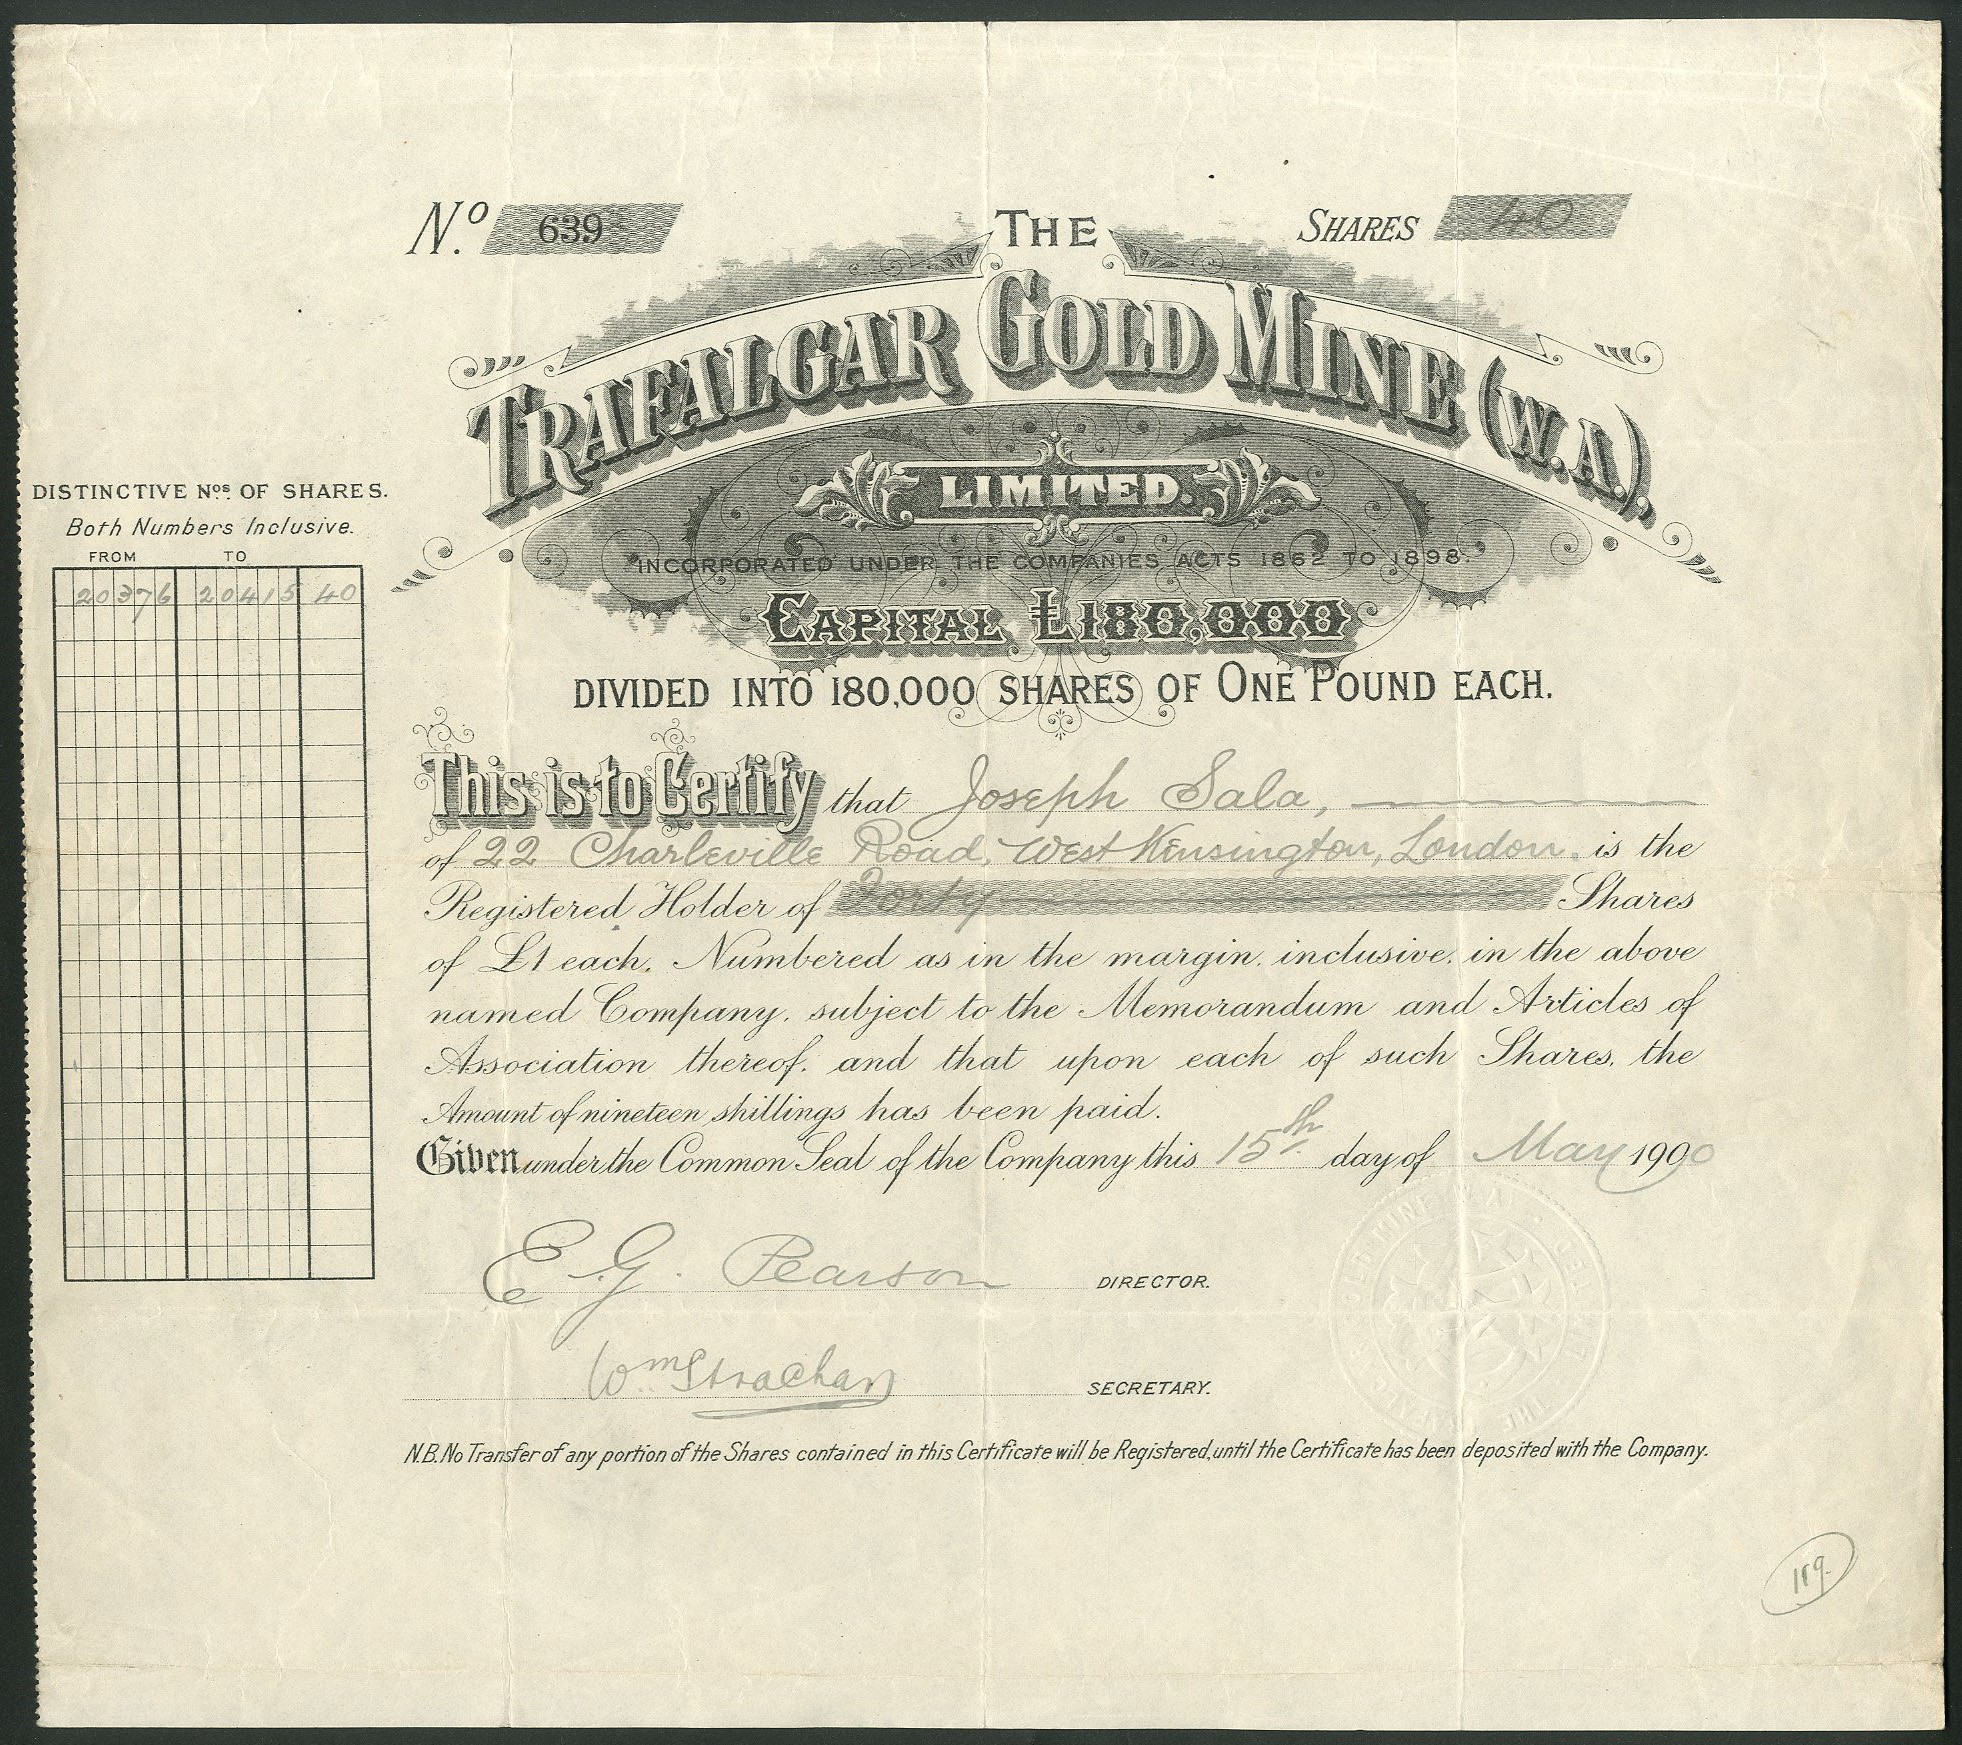 No. 639
SHARES 40
THE
TRAFALGAR GOLD MINE (W.A.),
LIMITED.
INCORPORATED UNDER THE COMPANIES ACTS 1862 TO 1898.
CAPITAL £180,000
DIVIDED INTO 180,000 SHARES OF ONE POUND EACH.
DISTINCTIVE Nos. OF SHARES.
Both Numbers Inclusive.
FROM TO
20376 20415 40
This is to Certify that Joseph Sala,
of 22 Charleville Road, West Kensington, London. is the
Registered Holder of Forty Shares
of £1 each. Numbered as in the margin. inclusive. in the above
named Company. subject to the Memorandum and Articles of
Association thereof. and that upon each of such Shares. the
Amount of nineteen shillings has been paid.
Given under the Common Seal of the Company this 15th day of May 1900
E. G. Pearson DIRECTOR.
Wm Strachan SECRETARY.
N.B. No Transfer of any portion of the Shares contained in this Certificate will be Registered, until the Certificate has been deposited with the Company.